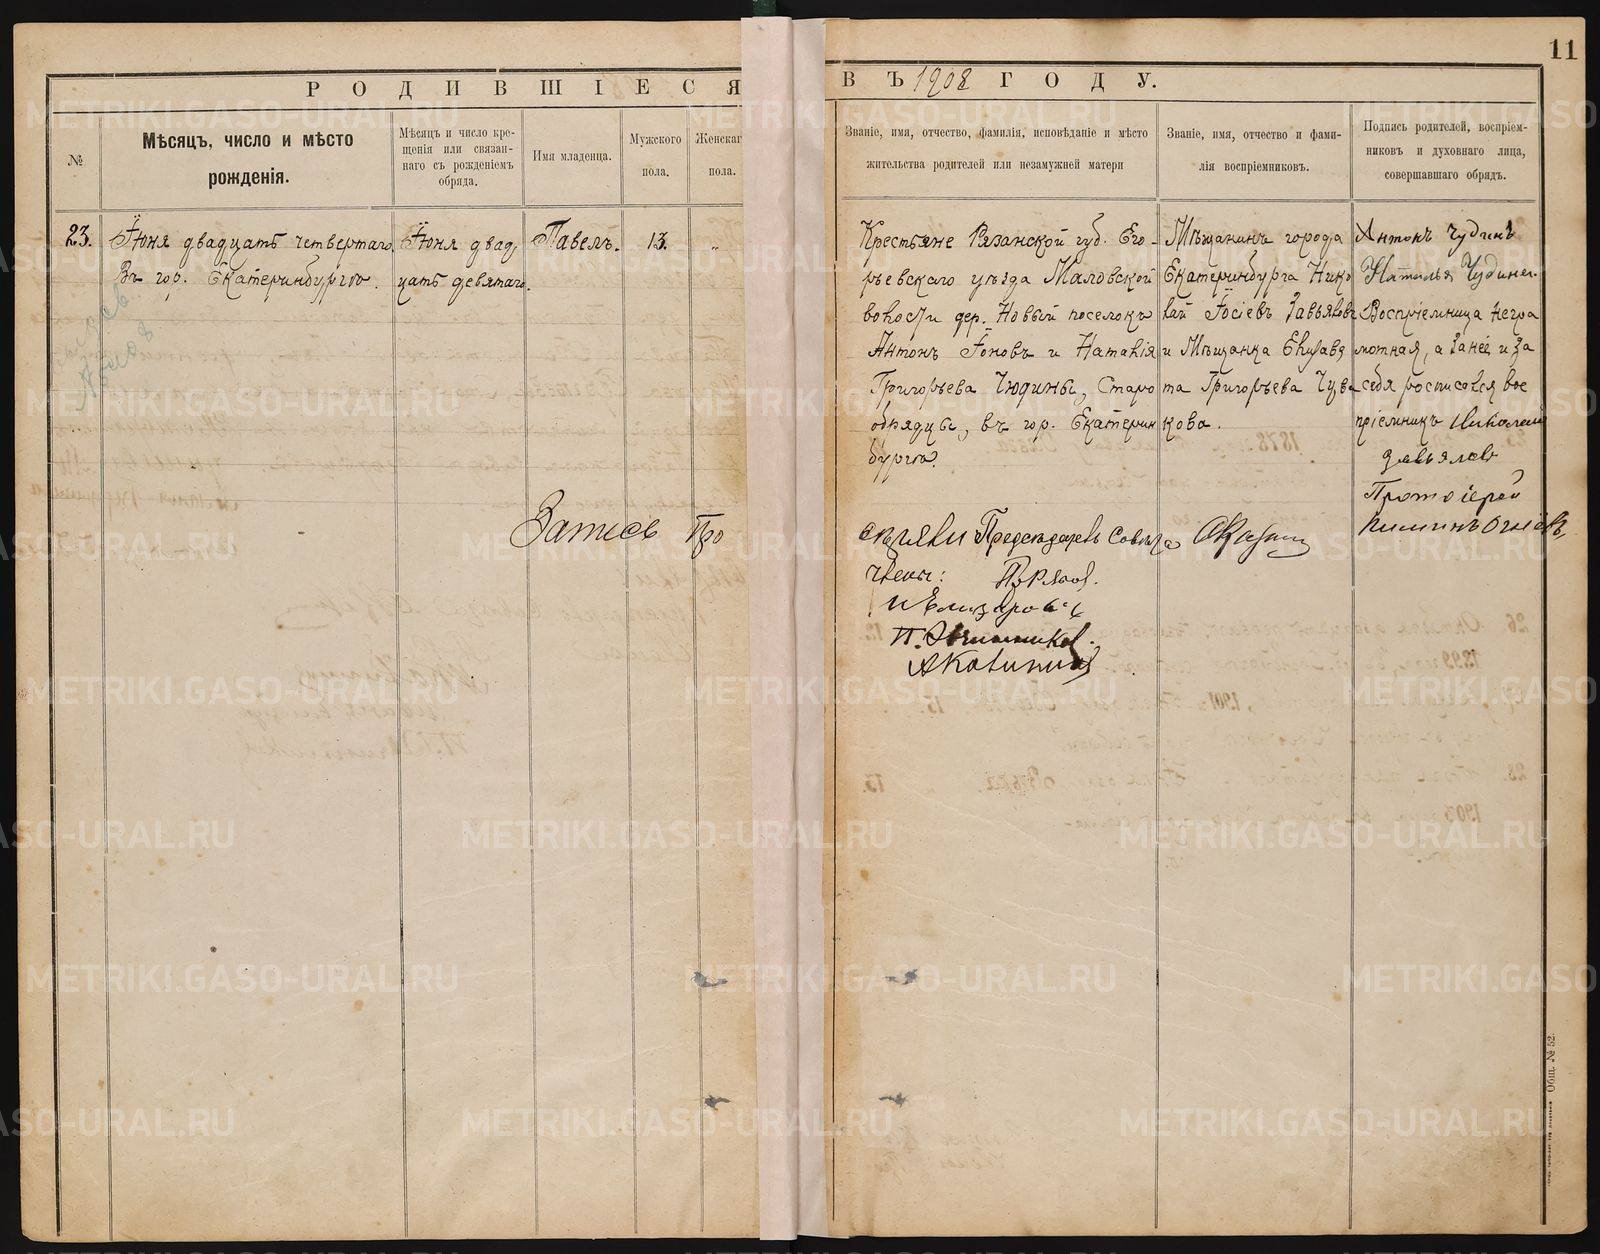 11
РОДИВШІЕСЯ ВЪ 1908 ГОДУ.
№
Мѣсяцъ, число и мѣсто
рожденія.
Мѣсяцъ и число кре-
щенія или связан-
наго съ рожденіемъ
обряда.
Имя младенца.
Мужского
пола.
Женскаг
пола.
Званіе, имя, отчество, фамилія, исповѣданіе и мѣсто
жительства родителей или незамужней матери
Званіе, имя, отчество и фами-
лія воспріемниковъ.
Подпись родителей, воспріем-
никовъ и духовнаго лица,
совершавшаго обрядъ.
23.
Іюня двадцать четвертаго.
Въ гор. Екатеринбургѣ.
Іюня двад
цать девятаго.
Павелъ.
13.
"
Крестьяне Рязанской губ. Его-
рьевскаго уѣзда Маловской
волости дер. Новый поселокъ
Антонъ Іоновъ и Наталія
Григорьева Чюдины, Старо
обрядцы, въ гор. Екатерин
бургѣ.
Мѣщанинъ города
Екатеринбурга Нико
лай Іосіевъ Завьяловъ
и Мѣщанка Елизаве
та Григорьева Чува
кова.
Антонъ Чудинъ
Наталья Чудина
Воспріемница негра
мотная, а за нее и за
себя росписался вос
пріемникъ Николай
Завьяловъ
Протоіерей
Запись про
Предсѣдатель Совѣта
Члены: